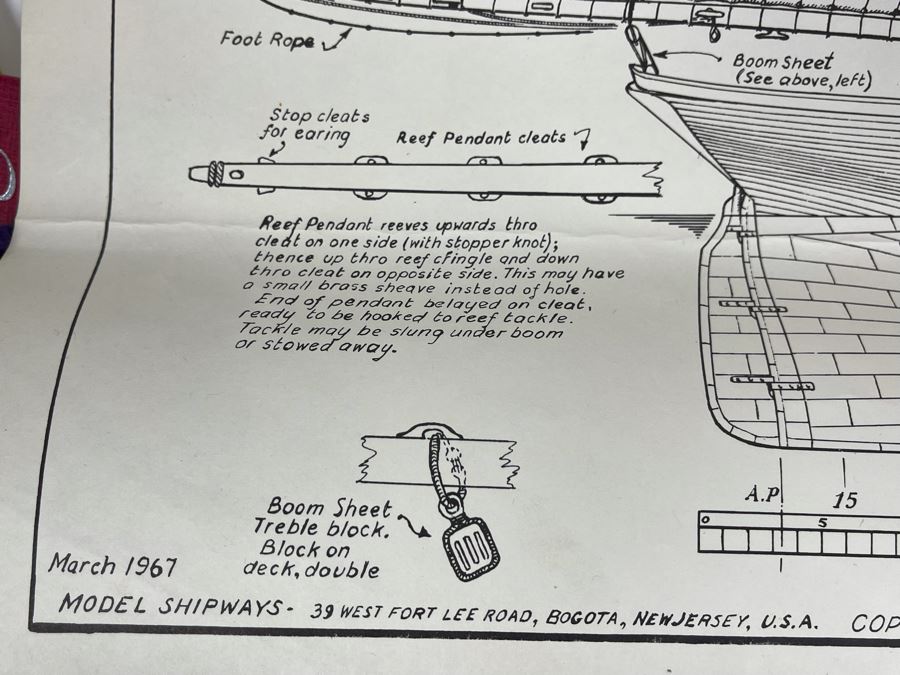 Foot Rope
Boom Sheet
(See above, left)
Stop cleats
for earing
Reef Pendant cleats
Reef Pendant reeves upwards thro
cleat on one side (with stopper knot);
thence up thro reef cringle and down
thro cleat on opposite side. This may have
a small brass sheave instead of hole.
End of pendant belayed on cleat,
ready to be hooked to reef tackle.
Tackle may be slung under boom
or stowed away.
A.P
15
0
5
Boom Sheet
Treble block.
Block on
deck, double
March 1967
MODEL SHIPWAYS- 39 WEST FORT LEE ROAD, BOGOTA, NEW JERSEY, U.S.A. COP